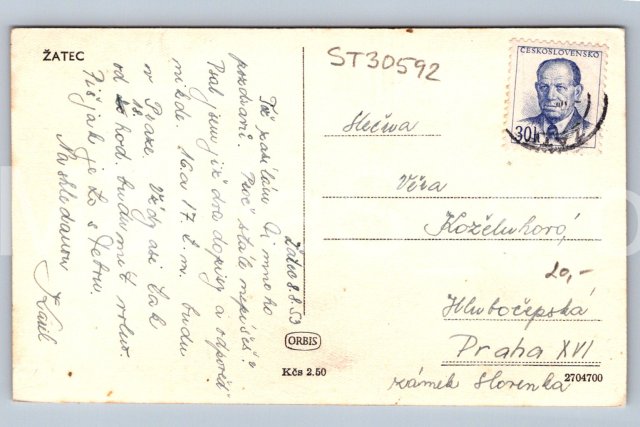 ŽATEC
ST30592
ČESKOSLOVENSKO
30h
Žatec 8.8.53
Též zasílám Ti mnoho
pozdravů. Proč stále nepíšeš?
Psal jsem již dva dopisy a odpověď
nikde. 16 a 17 t. m. budu
v Praze. Vždy asi tak
od 18 hod. budu mít volno.
Piš jak je to s Petrou.
Na shledanou
Slečna
Věra
Koželuhová
20,-
Hlubočepská
Praha XVI
zámek Slovenka
ORBIS
Kčs 2.50
2704700